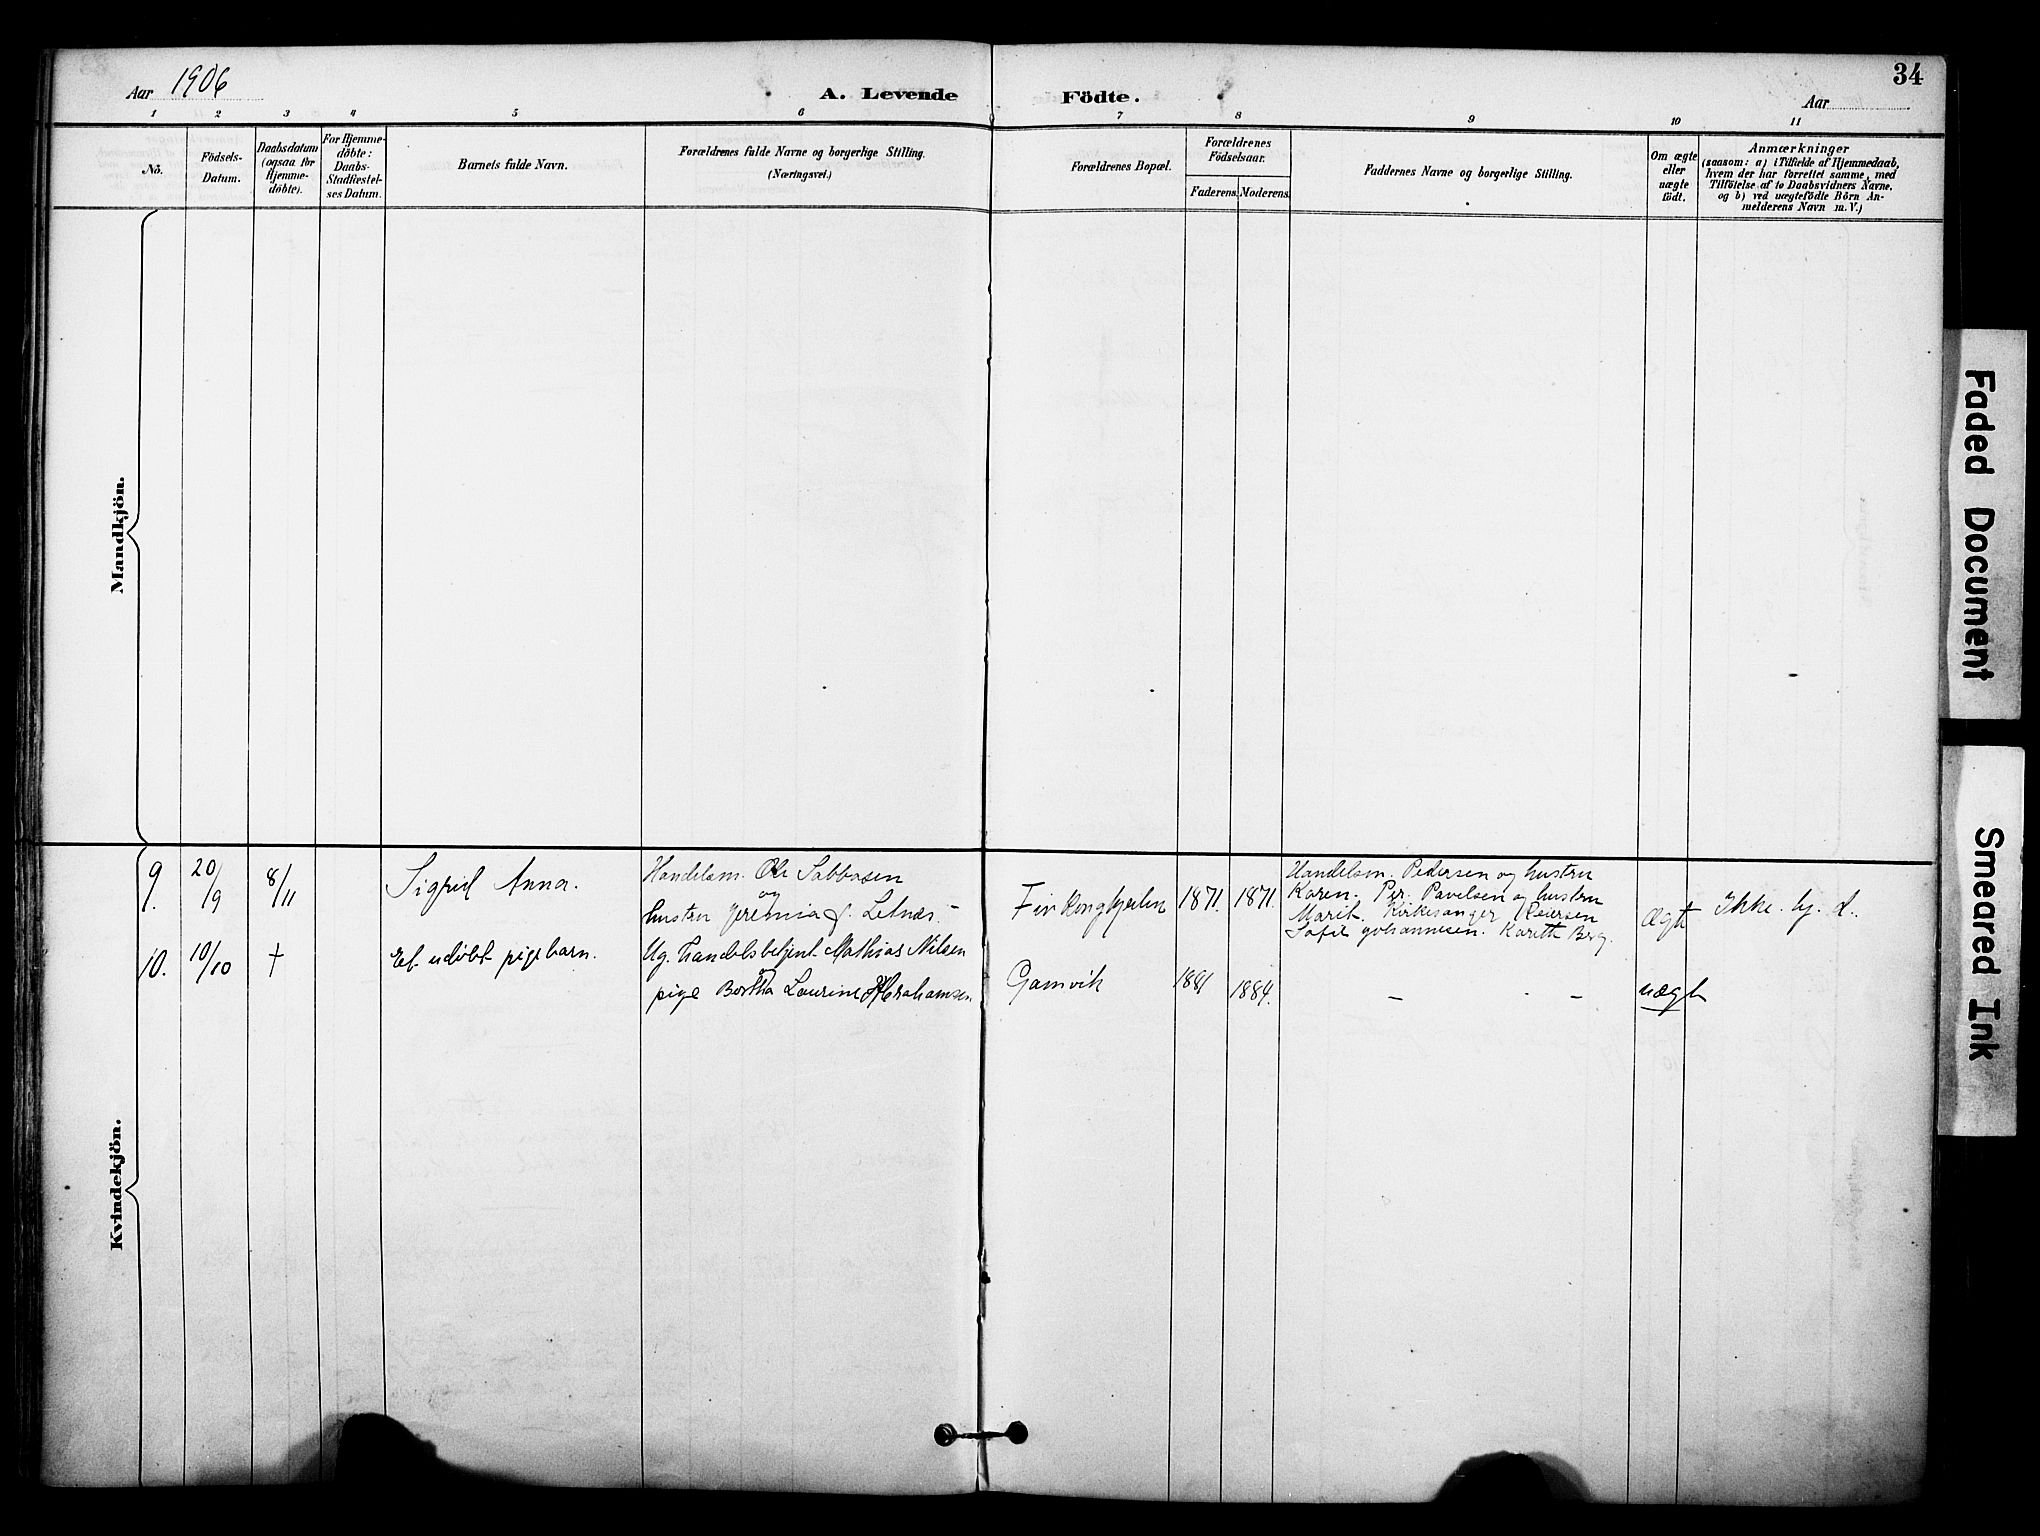 34
Aar 1906
A. Levende Födte.
Aar
1 2 3 4 5 6 7 8 9 10 11
No.
Födsels-
Datum.
Daabsdatum
(ogsaa for
Hjemme-
döbte).
For Hjemme-
döbte:
Daabs-
Stadfæstel-
ses Datum.
Barnets fulde Navn.
Forældrenes fulde Navne og borgerlige Stilling.
(Næringsvei.)
Forældrenes Bopæl.
Forældrenes
Födselsaar.
Faderens. Moderens.
Faddernes Navne og borgerlige Stilling.
Om ægte
eller
uægte
födt.
Anmærkninger
(saasom: a) i Tilfælde af Hjemmedaab,
hvem der har forrettet samme, med
Tilföielse af to Daabsvidners Navne.
og b) ved uægtefödte Börn An-
melderens Navn m. V.)
Mandkjön.
Kvindekjön.
9.
20/9
8/11
Sigrid Anna.
Handelsm. Ole Sabbasen
og
hustru Jeremia f. Letnæs. -
Finkongkjeilen
1871.
1871.
Handelsm. Pedersen og hustru
Karen. Per. Pavelsen og hustru
Marit. Kirkesanger Reiersen
Sofie Johannesen. Kareth Berg.
Ægte
Ikke. hj. d.
10.
10/10
†
Et udöbt pigebarn.
Ug. handelsbetjent Mathias Nilsen
pige Bertha Laurine Abrahamsen
Gamvik
1881
1884.
- -
uægt
Faded Document
Smeared Ink